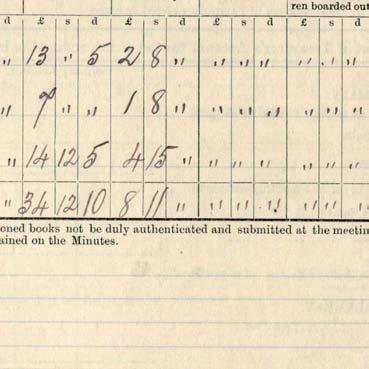 ren boarded out
d £ s d £ s d £ s d £ s d
" 13 " 5 2 8 " " " " " " "
" 7 " " 1 8 " " " " " " "
" 14 12 5 4 15 " " " " " " "
" 34 12 10 8 11 " " " " " " "
oned books not be duly authenticated and submitted at the meetin
ained on the Minutes.